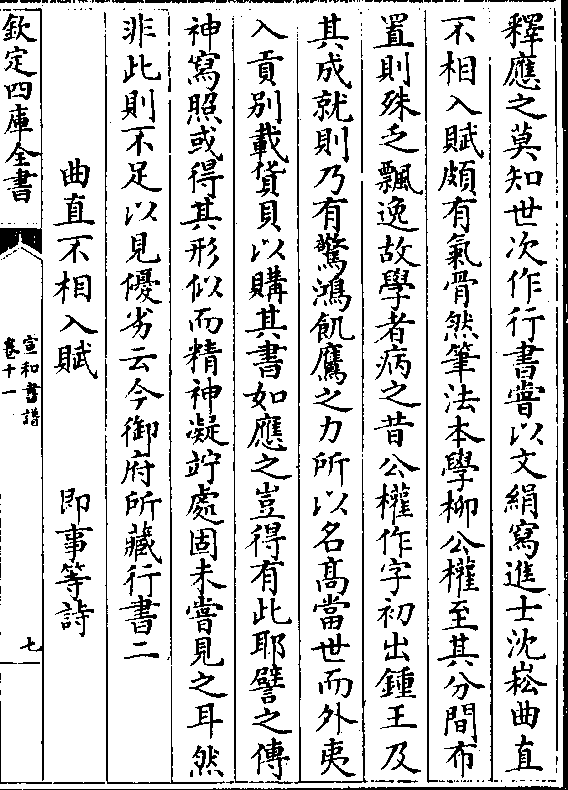 釋應之莫知世次作行書嘗以文絹寫進士沈崧曲直
不相入賦頗有氣骨然筆法本學柳公權至其分間布
置則殊乏飄逸故學者病之昔公權作字初出鍾王及
其成就則乃有驚鴻飢鷹之力所以名髙當世而外夷
入貢别載貨貝以購其書如應之豈得有此耶譬之傳
神寫照或得其形似而精神凝竚處固未嘗見之耳然
非此則不足以見優劣云今御府所藏行書二
曲直不相入賦 即事等詩
欽定四庫全書
宣和書譜
卷十一
七